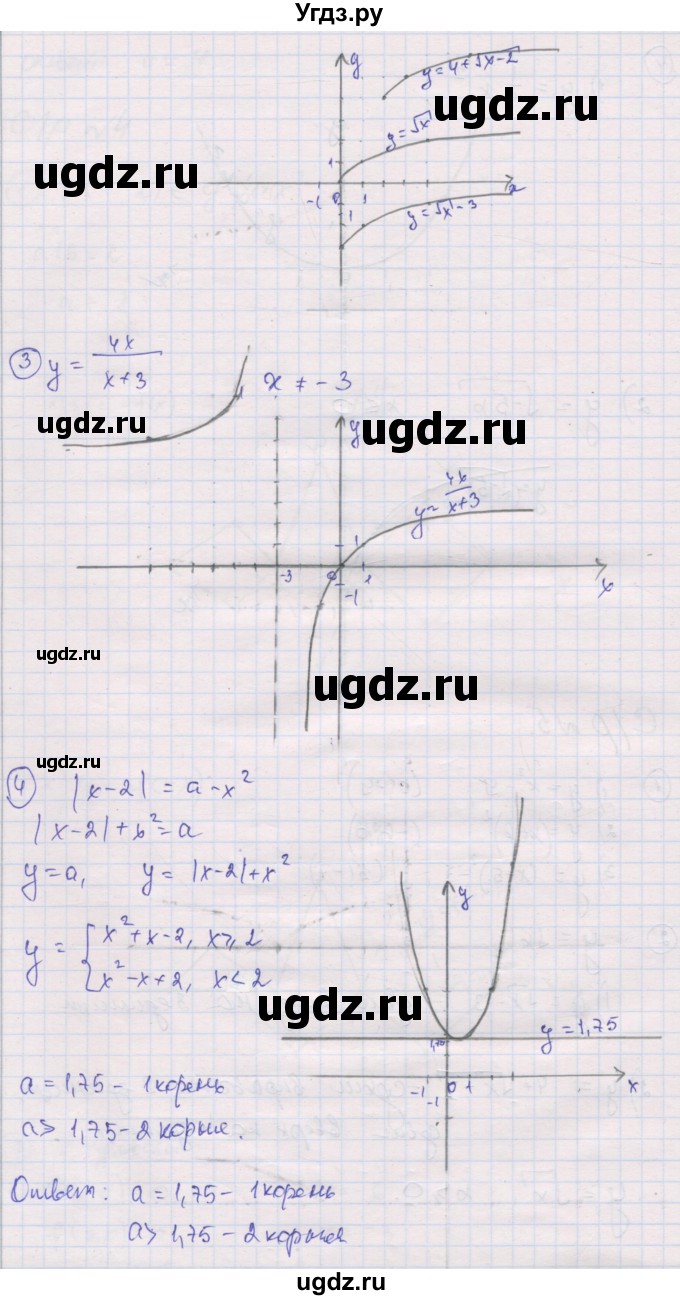 Угдз.ру
y
y=4+√x-2
ugdz.ru
y=√x
ugdz.ru
1
-1 0 1 x
-1
y=√x-3
③ y = 4x/x+3
x ≠ -3
ugdz.ru
ugdz.ru
y
y= 4x/x+3
1
-3 0 1
-1 x
ugdz.ru
ugdz.ru
ugdz.ru
④ |x-2| = a-x²
|x-2|+x²=a
y=a, y = |x-2|+x²
y
y = { x²+x-2, x⩾2
x²-x+2, x<2
ugdz.ru
y=1,75
1,75
a=1,75 - 1 корень
-1 0 1 x
-1
a> 1,75 - 2 корня.
Ответ: a = 1,75 - 1 корень
ugdz.ru
a> 1,75 - 2 корня
ugdz.ru